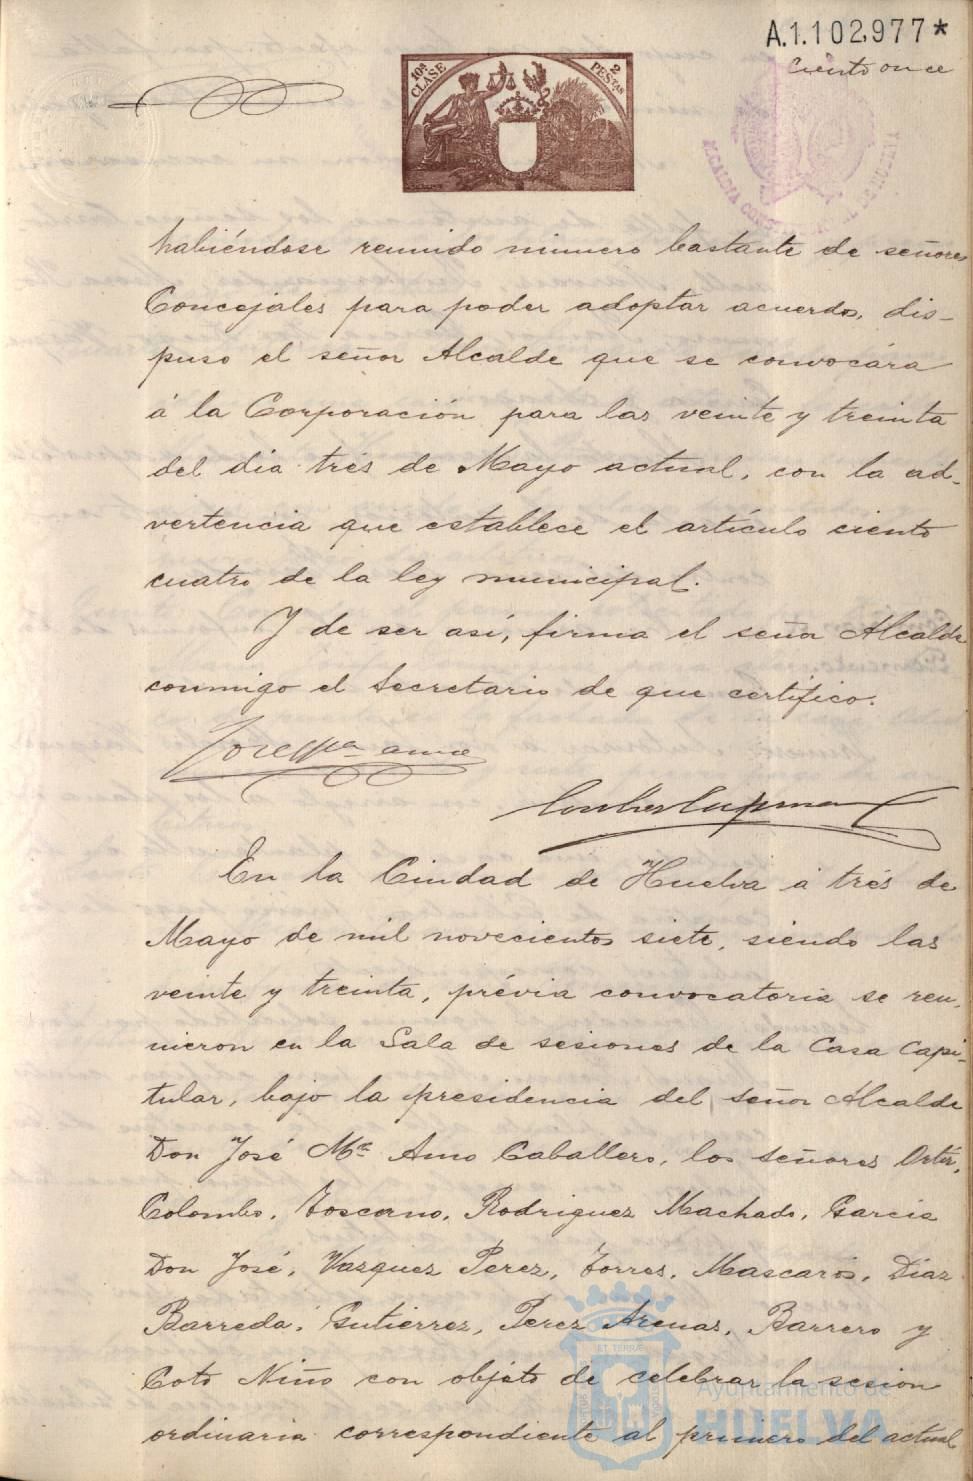 A.1.102,977*
Ciento once
10ª CLASE
2 PESTAS
ALCALDIA CONSTITUCIONAL DE HUELVA
habiéndose reunido número bastante de señores
Concejales para poder adoptar acuerdo, dis-
puso el señor Alcalde que se convocára
á la Corporación para las veinte y treinta
del dia trés de Mayo actual, con la ad-
vertencia que establece el artículo ciento
cuatro de la ley municipal.
Y de ser así, firma el señor Alcalde
conmigo el Secretario de que certifico.
En la Ciudad de Huelva á trés de
Mayo de mil novecientos siete, siendo las
veinte y treinta, prévia convocatoria se reu-
nieron en la Sala de sesiones de la Casa Capi-
tular, bajo la presidencia del señor Alcalde
Don José Mª Amo Caballero, los señores Ortiz,
Colombo, Toscano, Rodriguez Machado, Garcia
Don José, Vazquez Perez, Torres, Mascarós, Diaz
Barreda, Gutierrez, Perez Arenas, Barrero y
Coto Niño con objeto de celebrar la sesion
ordinaria correspondiente al primero del actual
Ayuntamiento de
HUELVA